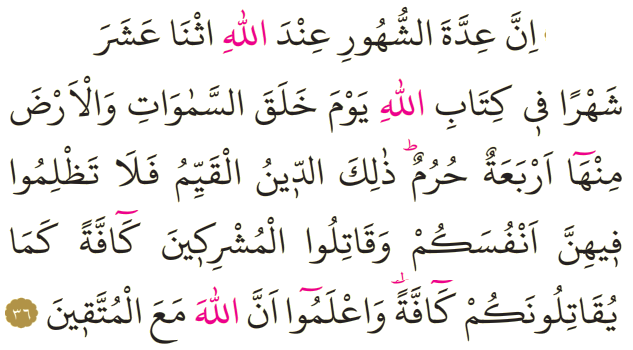 اِنَّ عِدَّةَ الشُّهُورِ عِنْدَ اللّٰهِ اثْنَا عَشَرَ
شَهْرًا ف۪ي كِتَابِ اللّٰهِ يَوْمَ خَلَقَ السَّمٰوَاتِ وَالْاَرْضَ
مِنْهَٓا اَرْبَعَةٌ حُرُمٌۜ ذٰلِكَ الدّ۪ينُ الْقَيِّمُ فَلَا تَظْلِمُوا
ف۪يهِنَّ اَنْفُسَكُمْ وَقَاتِلُوا الْمُشْرِك۪ينَ كَٓافَّةً كَمَا
يُقَاتِلُونَكُمْ كَٓافَّةًۜ وَاعْلَمُٓوا اَنَّ اللّٰهَ مَعَ الْمُتَّق۪ينَ ٣٦